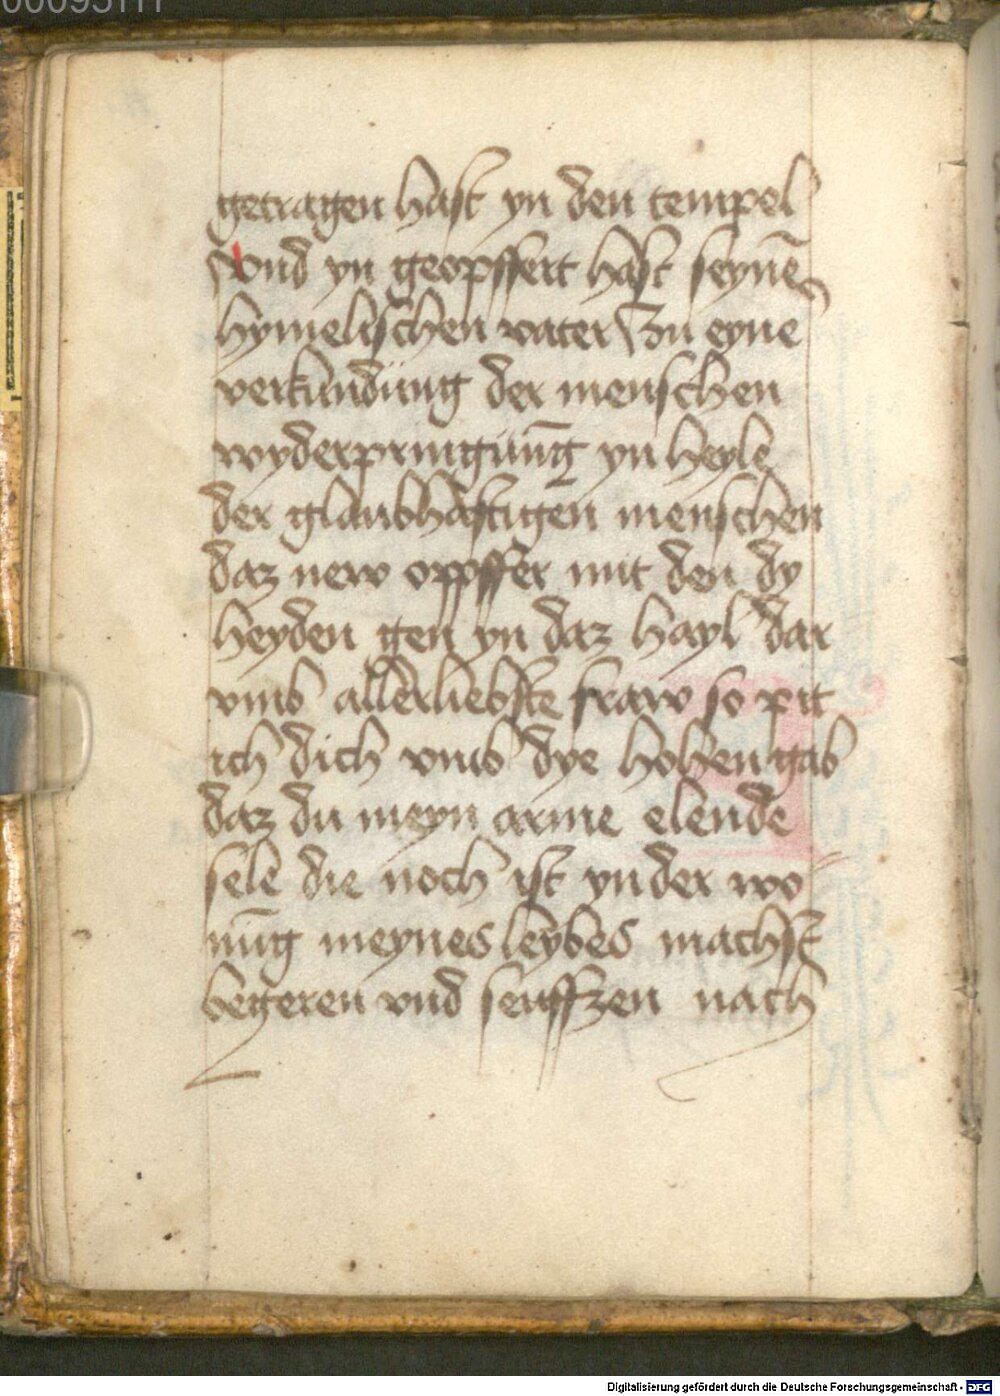 00095111
getragen hast yn den tempel
Vnd yn geopffert hast seynē
hymelischen vater Zu eyne
verkundüng der menschen
wyderpringūng yn heyle
der glaubhaftigen menschen
daz new oppffer mit den dy
heyden gen yn daz hayl dar
vmb allerliebste fraw so pit
ich dich vmb dye hohen gab
daz du meyn arme elende
sele die noch ist yn der wo=
nūg meynes leybes machst
begeren vnd seuffzen nach
Digitalisierung gefördert durch die Deutsche Forschungsgemeinschaft - DFG